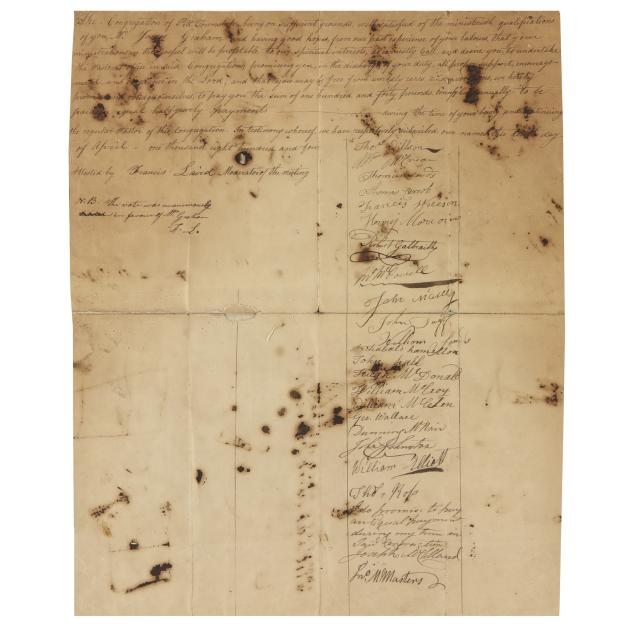 The Congregation of Pitt Township being on sufficient grounds, well satisfied of the ministerial qualifications
of you Mr. Graham and having good hopes, from our past experience of your labours that your
ministrations in the Gospel will be profitable to our spiritual interests, do earnestly Call and desire you to undertake
the Pastoral office in said Congregation promising you, in the discharge of your duty, all proper support, encourage-
ment and obedience in the Lord, And that you may be free from worldly cares and we hereby
promise and oblige ourselves, to pay you the sum of one hundred and forty pounds annually to be
paid in equal half yearly payments during the time of your being and continuing
the regular Pastor of this Congregation. In testimony whereof, we have respectively subscribed our names this day
of April one thousand eight hundred and four
Attested by Francis Laird Moderator of the meeting
N.B. The vote was unanimously
in favour of Mr. Graham
F. L.
Thos. Wilson
Thomas
Thomas
Francis Wilson
Robert Galbraith
Wm. McDowell
John McCully
John
Archabald hamelton
John hall
Hugh McDonald
William McCroy
William McClelen
Geo. Wallace
Dunning McNair
John Johnston
William Elliott
Thos. Ross
I do promise to pay
an Equal payment
during my time in
Said Congregation
Joseph McClland
Jno. McMasters